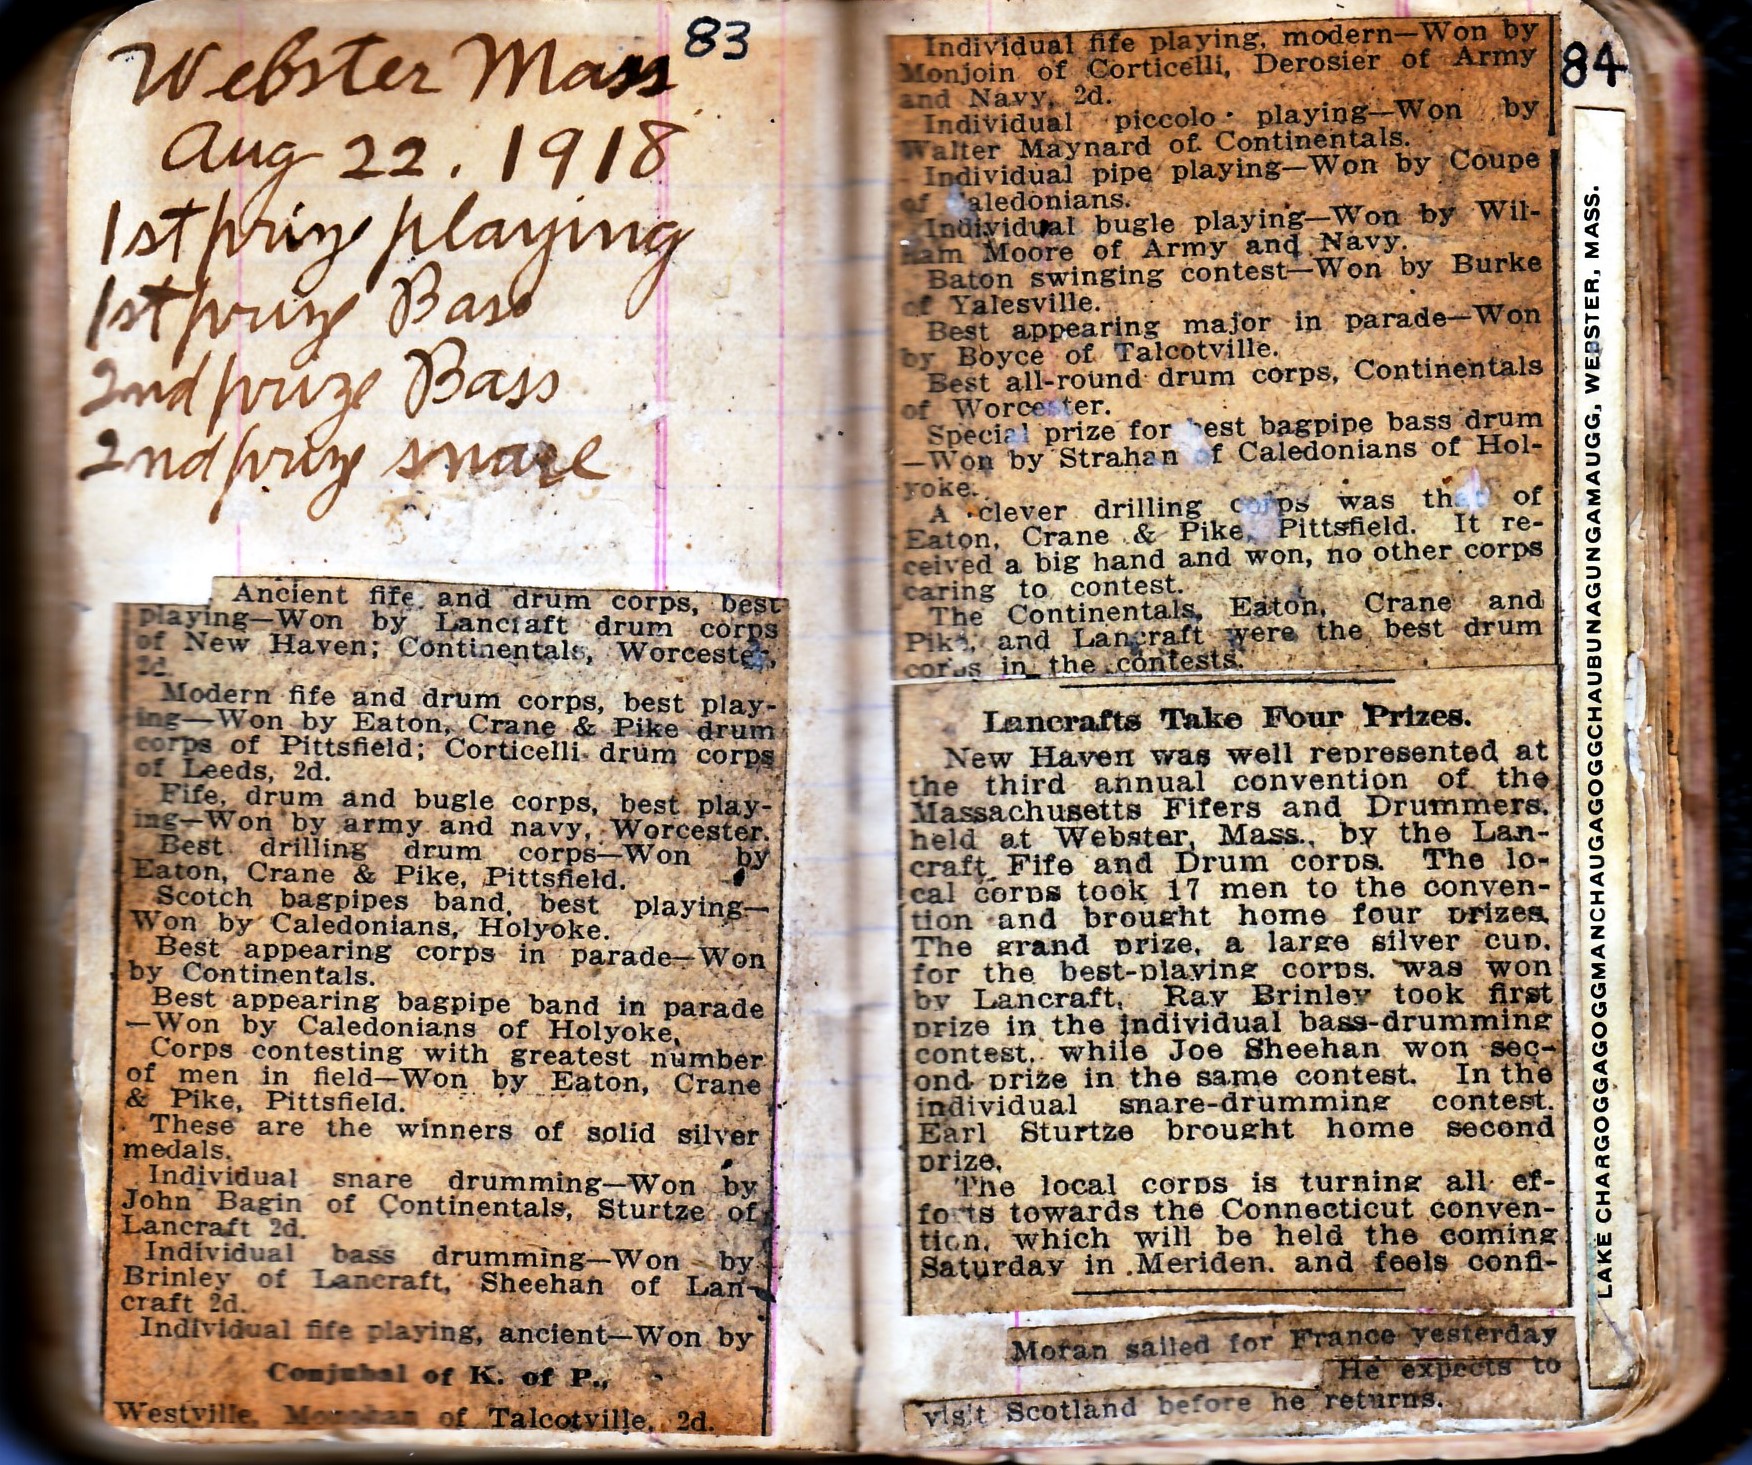 83
Webster Mass
Aug 22, 1918
1st prize playing
1st prize Bass
2nd prize Bass
2nd prize snare
Ancient fife and drum corps, best
playing—Won by Lancraft drum corps
of New Haven; Continentals, Worcester,
2d.
Modern fife and drum corps, best play-
ing—Won by Eaton, Crane & Pike drum
corps of Pittsfield; Corticelli drum corps
of Leeds, 2d.
Fife, drum and bugle corps, best play-
ing—Won by army and navy, Worcester.
Best drilling drum corps—Won by
Eaton, Crane & Pike, Pittsfield.
Scotch bagpipes band, best playing—
Won by Caledonians, Holyoke.
Best appearing corps in parade—Won
by Continentals.
Best appearing bagpipe band in parade
—Won by Caledonians of Holyoke.
Corps contesting with greatest number
of men in field—Won by Eaton, Crane
& Pike, Pittsfield.
These are the winners of solid silver
medals.
Individual snare drumming—Won by
John Bagin of Continentals, Sturtze of
Lancraft 2d.
Individual bass drumming—Won by
Brinley of Lancraft, Sheehan of Lan-
craft 2d.
Individual fife playing, ancient—Won by
of K. of P.,
Westville, of Talcotville, 2d.
84
Individual fife playing, modern—Won by
Monjoin of Corticelli, Derosier of Army
and Navy, 2d.
Individual piccolo playing—Won by
Walter Maynard of Continentals.
Individual pipe playing—Won by Coupe
of Caledonians.
Individual bugle playing—Won by Wil-
liam Moore of Army and Navy.
Baton swinging contest—Won by Burke
of Yalesville.
Best appearing major in parade—Won
by Boyce of Talcotville.
Best all-round drum corps, Continentals
of Worcester.
Special prize for best bagpipe bass drum
—Won by Strahan of Caledonians of Hol-
yoke.
A clever drilling corps was that of
Eaton, Crane & Pike, Pittsfield. It re-
ceived a big hand and won, no other corps
caring to contest.
The Continentals, Eaton, Crane and
Pike, and Lancraft were the best drum
corps in the contests.
Lancrafts Take Four Prizes.
New Haven was well represented at
the third annual convention of the
Massachusetts Fifers and Drummers,
held at Webster, Mass., by the Lan-
craft Fife and Drum corps. The lo-
cal corps took 17 men to the conven-
tion and brought home four prizes.
The grand prize, a large silver cup,
for the best-playing corps, was won
by Lancraft. Ray Brinley took first
prize in the individual bass-drumming
contest, while Joe Sheehan won sec-
ond prize in the same contest. In the
individual snare-drumming contest.
Earl Sturtze brought home second
prize.
The local corps is turning all ef-
forts towards the Connecticut conven-
tion, which will be held the coming
Saturday in Meriden, and feels confi-
Moran sailed for France yesterday
He expects to
visit Scotland before he returns.
LAKE CHARGOGGAGOGGMANCHAUGAGOGGCHAUBUNAGUNGAMAUGG, WEBSTER, MASS.